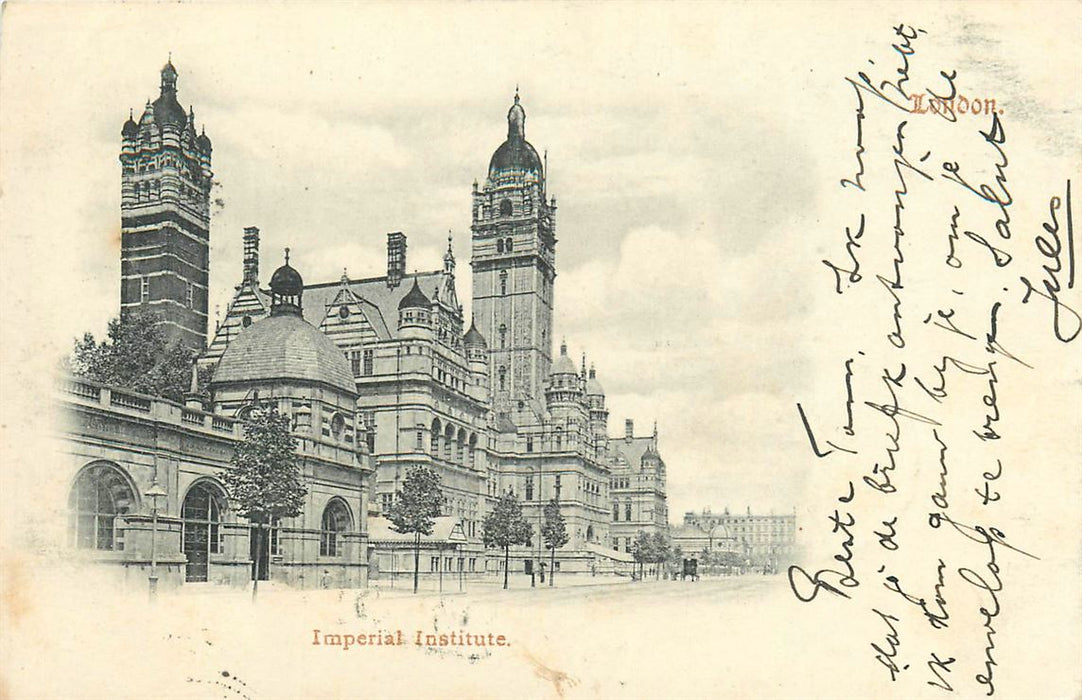 London.
Beste Tam, Ik hoop
dat je de brief ontvangen hebt,
ik kom gauw bij je, om je de
enveloppe te brengen. Saluut
Jules
Imperial Institute.